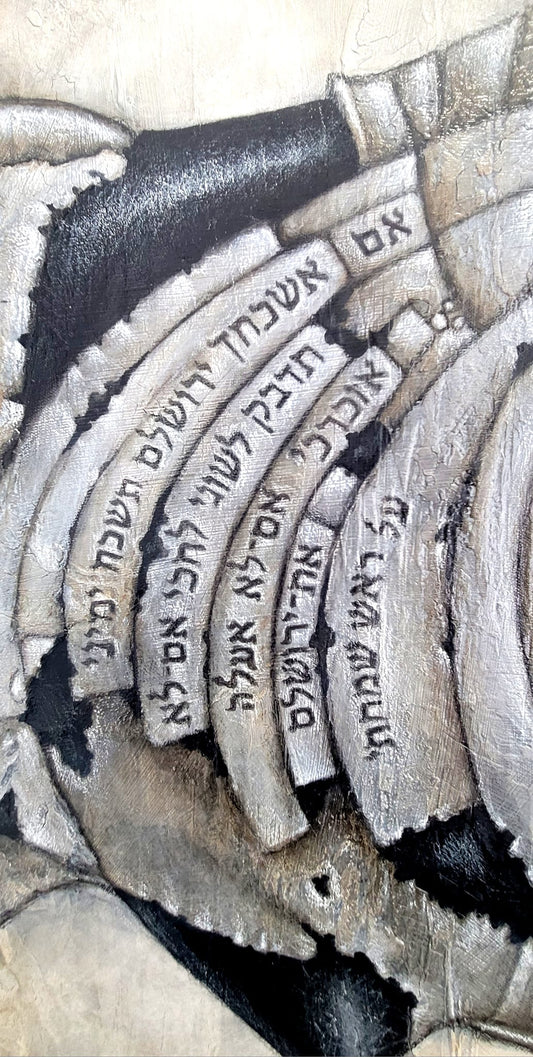 אם
אשכחך ירושלם תשכח ימיני
תדבק לשוני לחכי אם-לא
אזכרכי אם-לא אעלה
את-ירושלם
על ראש שמחתי